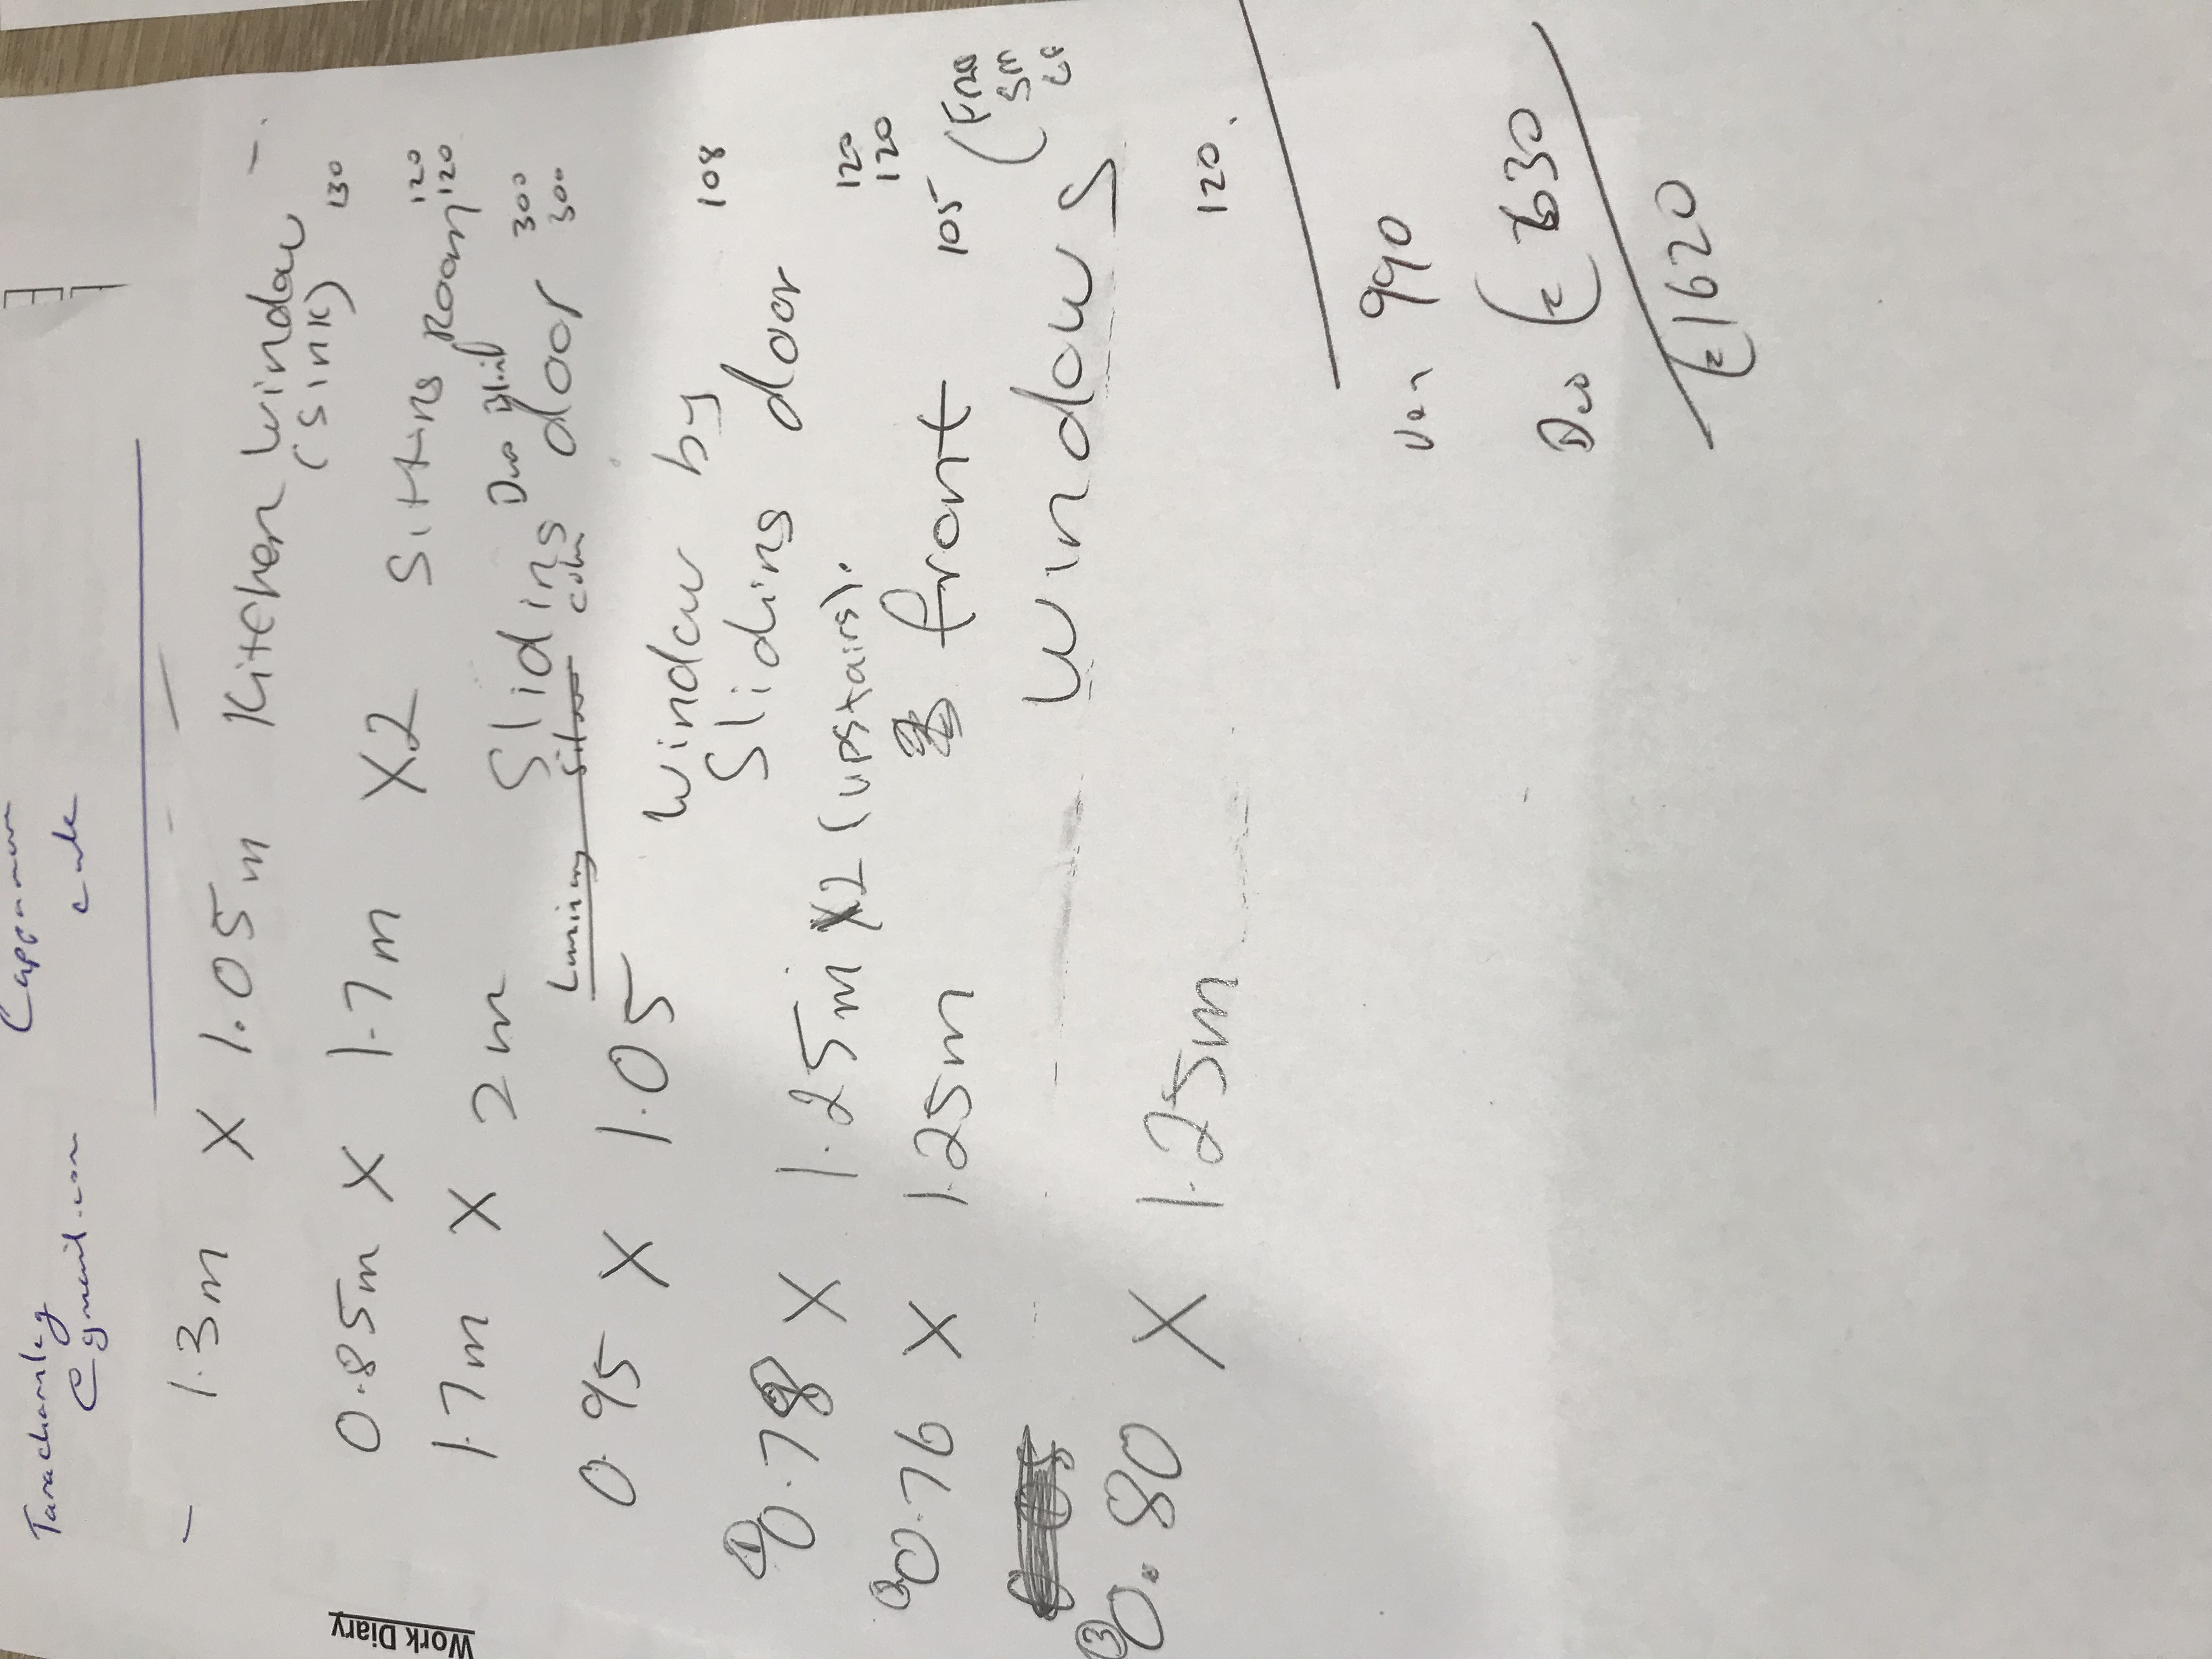 Cappamore
Tarachamley
@gmail.com
1.3m X 1.05m Kitchen window
(Sink) 130
0.85m X 1.7m X2 Sitting Room 120
120
1.7m X 2m Sliding door 300
300
Duo Blind
Luminary
0.95 X 1.05 Window by 108
Sliding door
① 0.78 X 1.25m X2 (upstairs). 120
120
② 0.76 X 1.25m front 105
windows
③ 0.80 X 1.25m 120.
Ven 990
Duo € 630
€1620
Work Diary